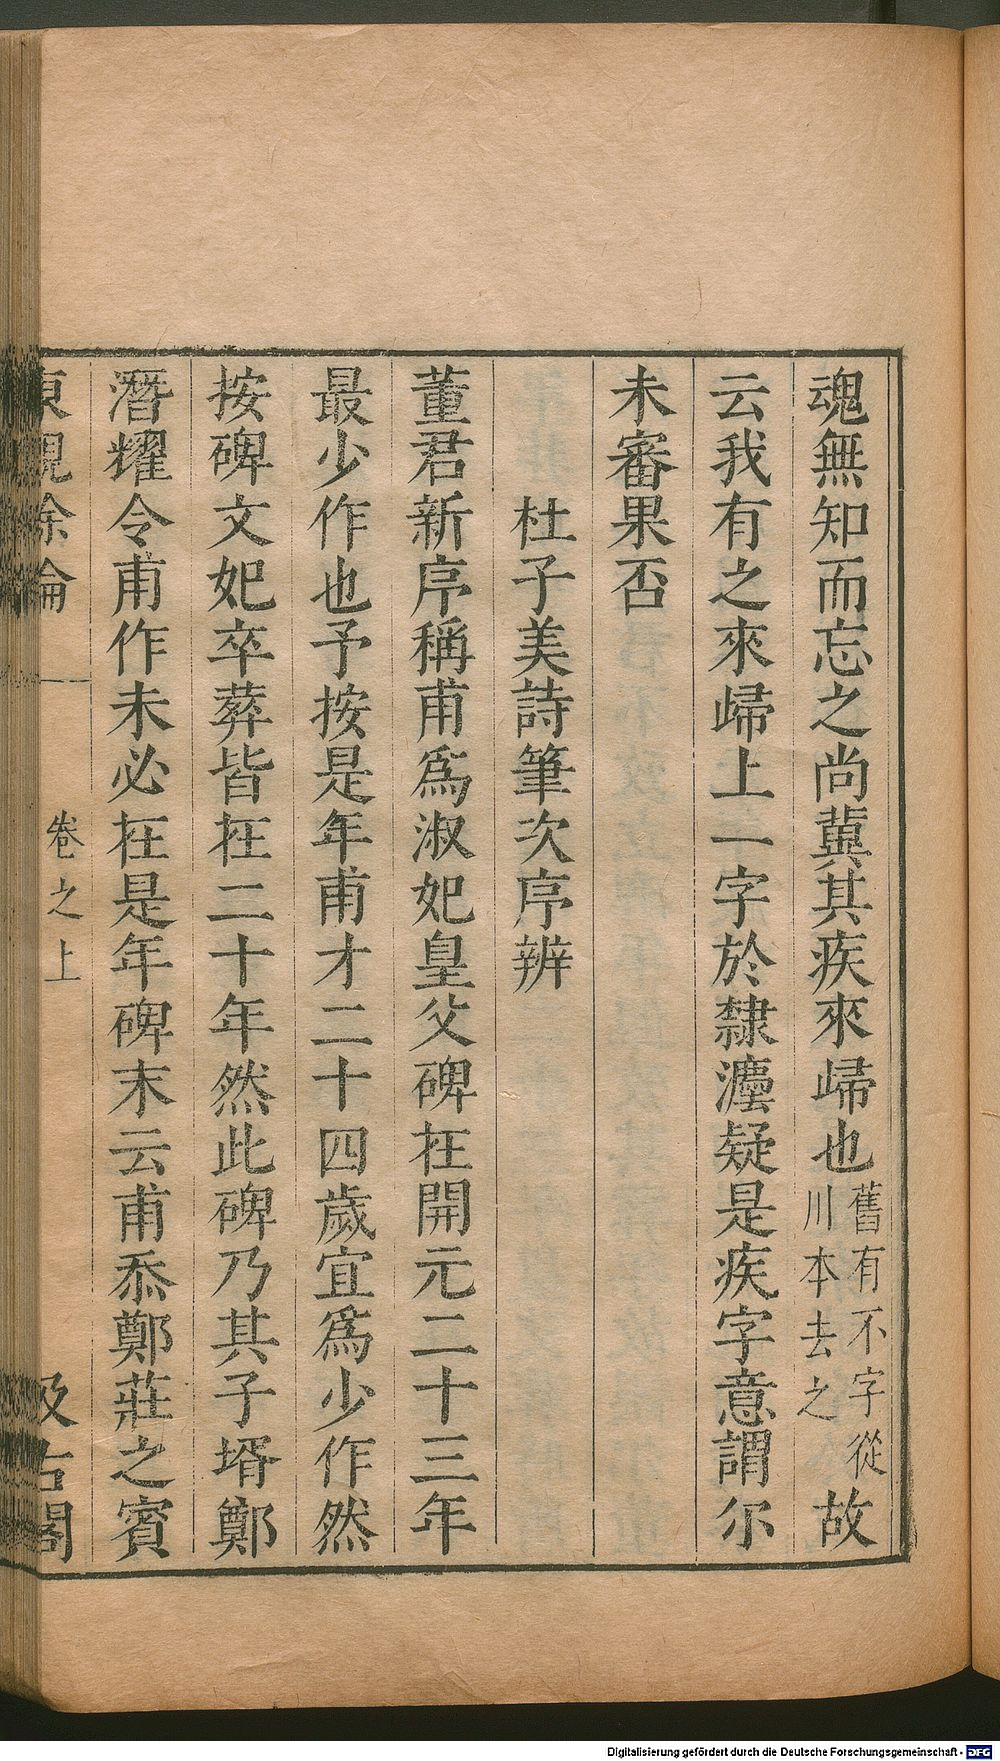 魂無知而忘之尚冀其疾來歸也舊有不字從川本去之故
云我有之來歸上一字於隸灋疑是疾字意謂尔
未審果否
杜子美詩筆次序辨
董君新序稱甫爲淑妃皇父碑在開元二十三年
最少作也予按是年甫才二十四歲宜爲少作然
按碑文妃卒葬皆在二十年然此碑乃其子壻鄭
潛耀令甫作未必在是年碑末云甫忝鄭莊之賓
東觀余論 卷之上 汲古閣
Digitalisierung gefördert durch die Deutsche Forschungsgemeinschaft - DFG